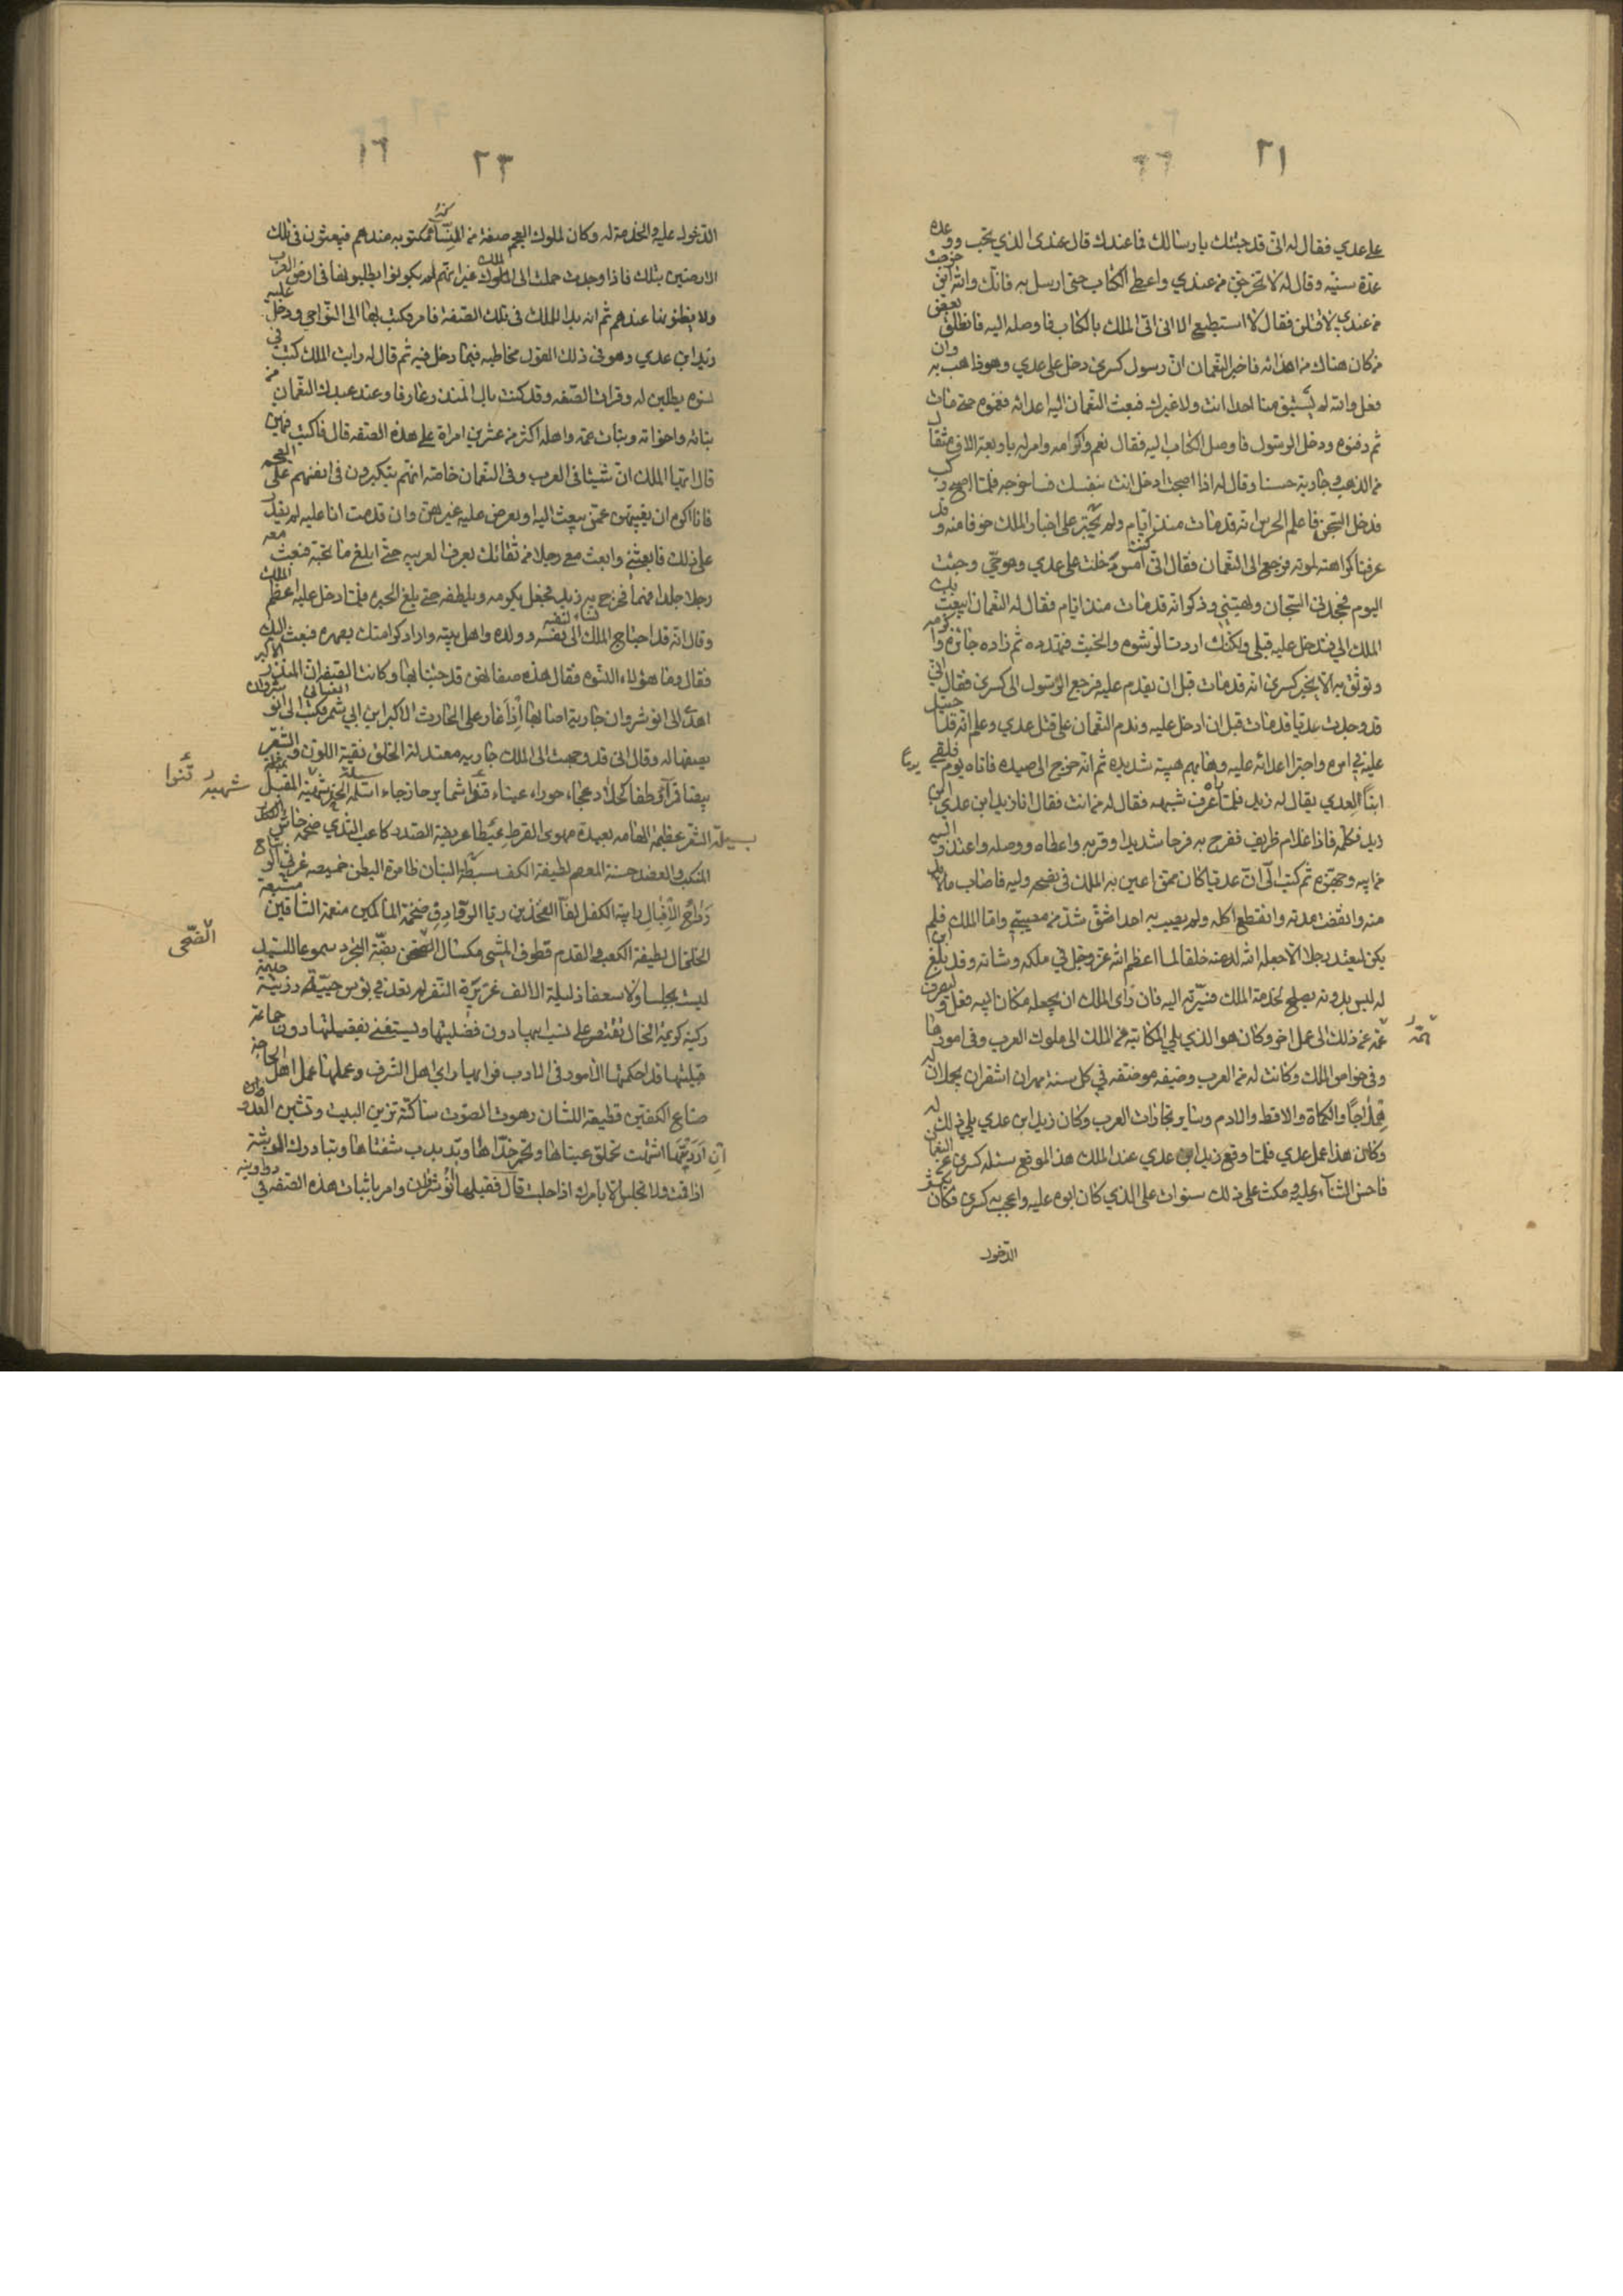 ٢١
على عدي فقال له اني قد جئتك بارسالك فما عندك قال عندى الذي تحب ووعده
عدة سنيه وقال له لا تخرجن من عندي واعطي الكتاب حتى ارسل به فانك والله ان خرجت
من عندي لاقتلن فقال لا استطيع الا ان اتى الملك بالكتاب فاوصله اليه فانطلق بعض
من كان هناك من اعدائه فاخبر النعمان ان رسول كسرى دخل على عدي وهو ذاهب به وان
فعل والله لم يستبق منا احدا انت ولا غيرك فبعث النعمان اليه اعدائه فغموه حتى مات
ثم دفنوه ودخل الرسول فاوصل الكتاب اليه فقال نعم وكرامه وامر له باربعة الاف مثقال
من الذهب وجارية حسنا وقال له اذا اصبحت ادخل انت بنفسك فاخرجه فلما اصبح ركب
فدخل السجن فاعلم الحرس انه قد مات منذ ايام ولم نجتر على اخبار الملك خوفا منه وقد
عرفنا كراهته لموته فرجع الى النعمان فقال اني كنت امس دخلت على عدي وهو حي وجئت
اليوم فجحدني السجان وبهتني وذكر انه قد مات منذ ايام فقال له النعمان ايبعث بك
الملك الي فتدخل عليه قبلي ولكنك اردت الرشوه والخبث فتهدده ثم زاده جائزه واكرمه
وتوثق به الا يخبر كسرى انه قد مات قبل ان يقدم عليه فرجع الرسول الى كسرى فقال اني
قد وجدت عديا قد مات قبل ان ادخل عليه وندم النعمان على قتل عدي وعلم انه قد احتيل
عليه في امره واجترا اعدائه عليه وهابهم هيبة شديده ثم انه خرج الى صيده فاتاه يوم فلقي
ابنا لعدي يقال له زيد فلما راه عرف شبهه فقال له من انت فقال انا زيد ابن عدي ابن
زيد فكلمه فاذا غلام ظريف ففرح به فرحا شديدا وقربه واعطاه ووصله واعتذر اليه
من ابيه وجهزه ثم كتب الى ان عديا كان ممن اعين به الملك في نصحه ولبه فاصاب مالا بد
منه وانقضت مدته وانقطع اكله ولم يصب به احد اشق اشد من مصيبتي واما الملك فلم
يكن ليفقد رجلا الا جعل الله له منه خلفا لما اعظم الله عز وجل في ملكه وشانه وقد بلغ ابن
له ليس بدونه يصلح لخدمة الملك فسيرته اليه فان رأى الملك ان يجعله مكان ابيه فعل وليصرف
عمه عن ذلك الى عمل اخر وكان هو الذي يلي المكاتبة عن الملك الى ملوك العرب وفى امورها
وفى خواص الملك وكانت له من العرب وضيفه موضفه في كل سنة مهران اشقران يجعلان له
هلاجا والكماة والاقط والادم وساير تجارات العرب وكان زيد ابن عدي يلي ذلك له
وكان هذا عمل عدي فلما وقع زيد ابن عدي عند الملك هذ الموقع سئله كسرى عن النعمان
فاحسن الثنآء عليه ومكث على ذلك سنوات على الذي كان ابوه عليه واعجب به كسرى فكان يكثر
الدخول
عمه
٢٣ ١٦
الدخول عليه والخدمة له وكان لملوك العجم صفة من النسآء مكتوبه عندهم فيبعثون في تلك
الارضين بتلك فاذا وجدت حملت الى الملك غير انهم لم يكونوا يطلبونها فى ارض العرب
ولا يظنونها عندهم ثم انه بدا للملك فى تلك الصفة فامر وكتب بها الى النواحي ودخل عليه
زيد ابن عدي وهو فى ذلك القول مخاطبه فيما دخل فيه ثم قال له رايت الملك كتب في
نسوه يطلبن له وقرات الصفه وقد كنت بال المنذر عارفا وعند عبدك النعمان من
بناته واخواته وبنات عمه واهله اكثر من عشرين امراة على هذه الصفه قال فاكتب فيهن
قال ايها الملك ان شيئا فى العرب وفى النعمان خاصه انهم يتكبرون فى انفسهم على العجم
فانا اكره ان يغيبهن عمن يبعث اليه او يعرض عليه غيرهن وان قدمت انا عليه لم يقدر
على ذلك فابعثني وابعث معي رجلا من ثقاتك يعرف العربيه حتى ابلغ ما تحبه فبعث معه
رجلا جلدا فهما فخرج به زيد فجعل يكرمه ويلطفه حتى بلغ الحيره فلما دخل عليه اعظم الملك
وقال انه قد احتاج الملك الى نساء لنفسه وولده واهل بيته واراد كرامتك بصهره فبعث اليك
فقال وما هؤلاء النسوه فقال هذه صفاتهن قد جئنا بها وكانت الصفه ان المنذر الاكبر
اهدى الى انوشروان جارية اصابها اذ اغار على الحارث الاكبر ابن ابي شمر الغساني فكتب الى انوشروان
يصفها له وقال اني قد وجهت الى الملك جاريه معتدلة الخلق نقية اللون والثغر
بيضا قمرآء وطفا كحلآء دعجاء حوراء عيناء قنواء شما برجا زجاء اسيلة الخد شهية المقبل
الشعر عظيمة الهامه بعيدة مهوى القرط عيطا عريضة الصدر كاعب الثدي ضخمه
المنكب والعضد حسنة المعصم لطيفة الكف سبطة البنان ضامرة البطن خميصه غرثى الوشاح
رداح الاقبال رابية الكفل لفآء الفخذين ريا الروادف ضخمة الماكمين منعمة الساقين مشبعة
الخلخال لطيفة الكعب والقدم قطوف المشي مكسال الضحى بضة المتجرد سموعا للسيد
ليست بخلساء ولا سعفا ذليلة الانف عزيزة النفر لم تغذ في بؤس حييه رزينة حليمة
ركينة كريمة الخال تقتصر على نسب ابيها دون فضليتها وتستغنى بفضيلتها دون جماعة
قبيلتها قد احكمتها الامور فى الادب فرايها راي اهل الشرف وعملها عمل اهل الحاجة
صناع الكفين قطيعة اللسان رهوت الصوت ساكنة تزين البيت وتشين العدو
ان اردتها اشتهت تحملق عيناها وتحمر خداها وتذبذب شفتاها وتبادرك الوثبة
اذا قمت ولا تجلس الا بامرك اذا جلست قال فقبلها انوشروان وامر باثبات هذه الصفه في دواوينه
شهية
الضحى